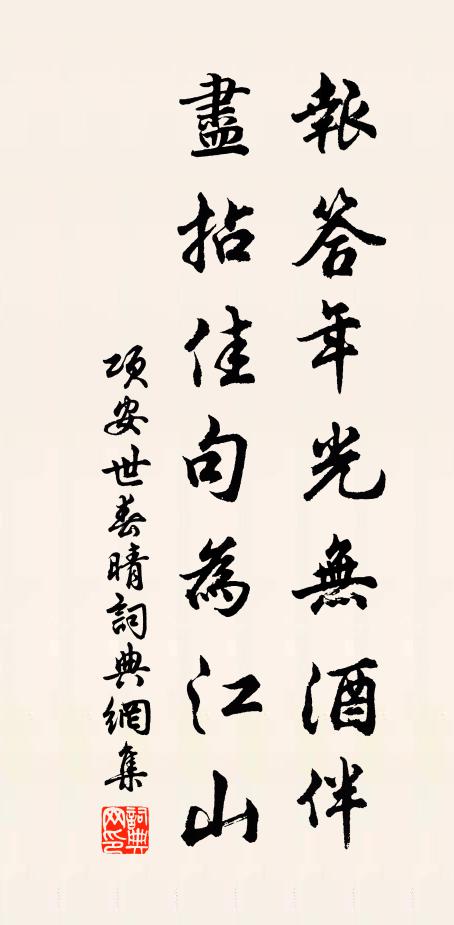 報答年光無酒伴
盡拈佳句為江山
項安世春晴詞典網集
詞典網印